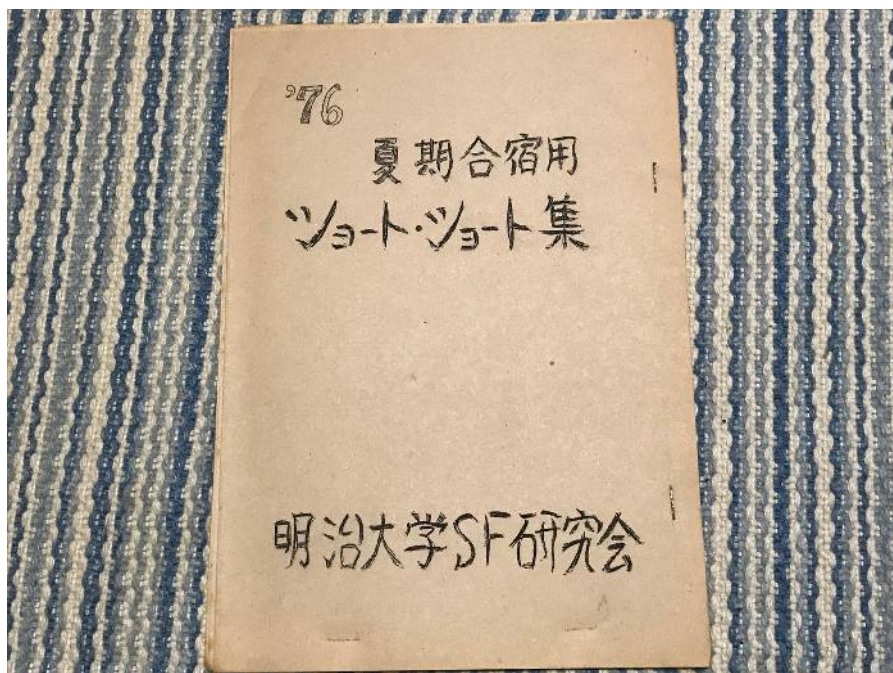 '76
夏期合宿用
ショート・ショート集
明治大学SF研究会